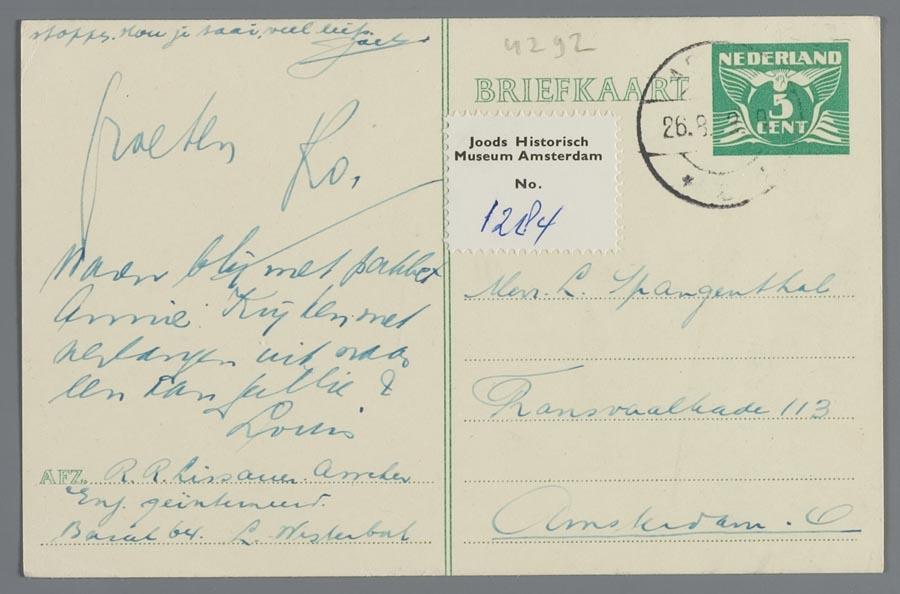 stoppen. Hou je taai, veel liefs
4292
groeten Ko.
Waren blij met pakket
Annie. Kijken met
verlangen uit naar
een van jullie
Louis
AFZ. R. R. Lissauer. Asscher
Eng. geïnterneerd.
Barak 64. L. Westerbork
BRIEFKAART
NEDERLAND
5
CENT
26.8
Joods Historisch
Museum Amsterdam
No.
1284
Mevr. L. Spangenthal
Transvaalkade 113
Amsterdam. O